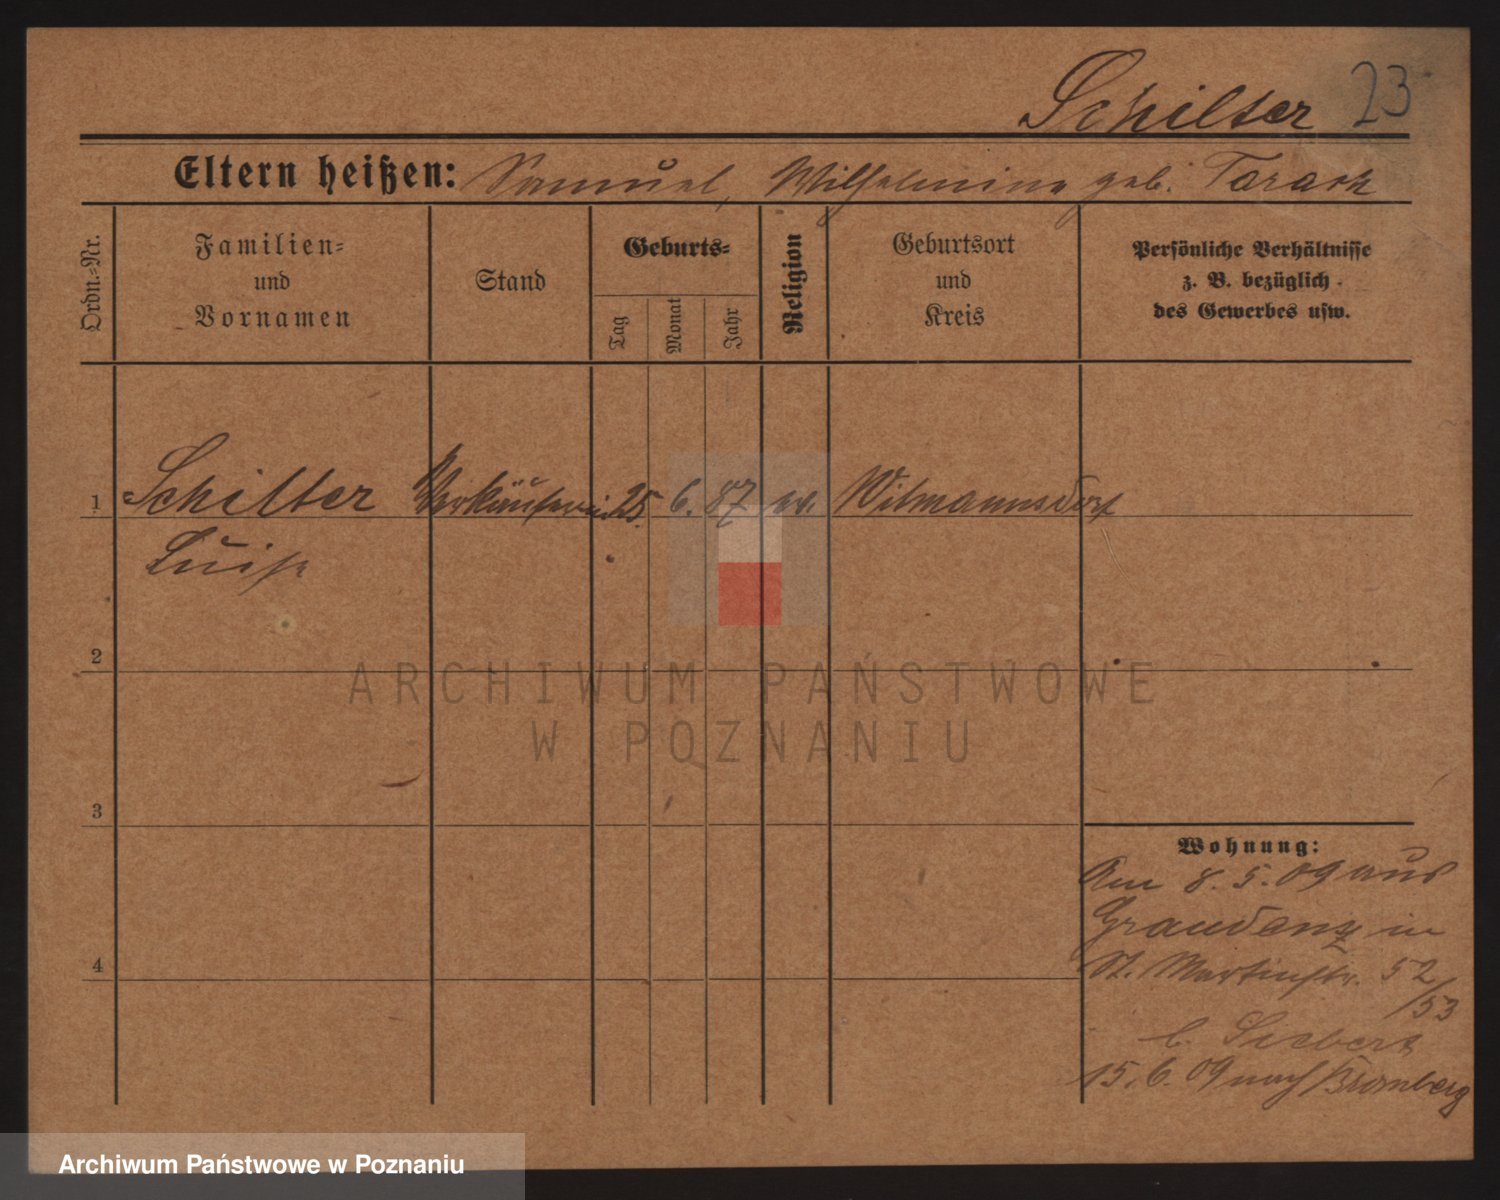 Schilter 23
Eltern heißen: Samuel, Wilhelmine geb. Tarach
Ordn.=Nr.
Familien=
und
Vornamen
Stand
Geburts=
Tag
Monat
Jahr
Religion
Geburtsort
und
Kreis
Persönliche Verhältnisse
z. B. bezüglich
des Gewerbes usw.
1 Schilter Verkäuferin 25. 6. 87 ev. Wilmannsdorf
Luise
2
3
4
Wohnung:
Am 8. 5. 09 aus
Graudenz in
St. Martinstr. 52
/53
b. Siebert
15. 6. 09 nach Bromberg
ARCHIWUM PAŃSTWOWE
W POZNANIU
Archiwum Państwowe w Poznaniu